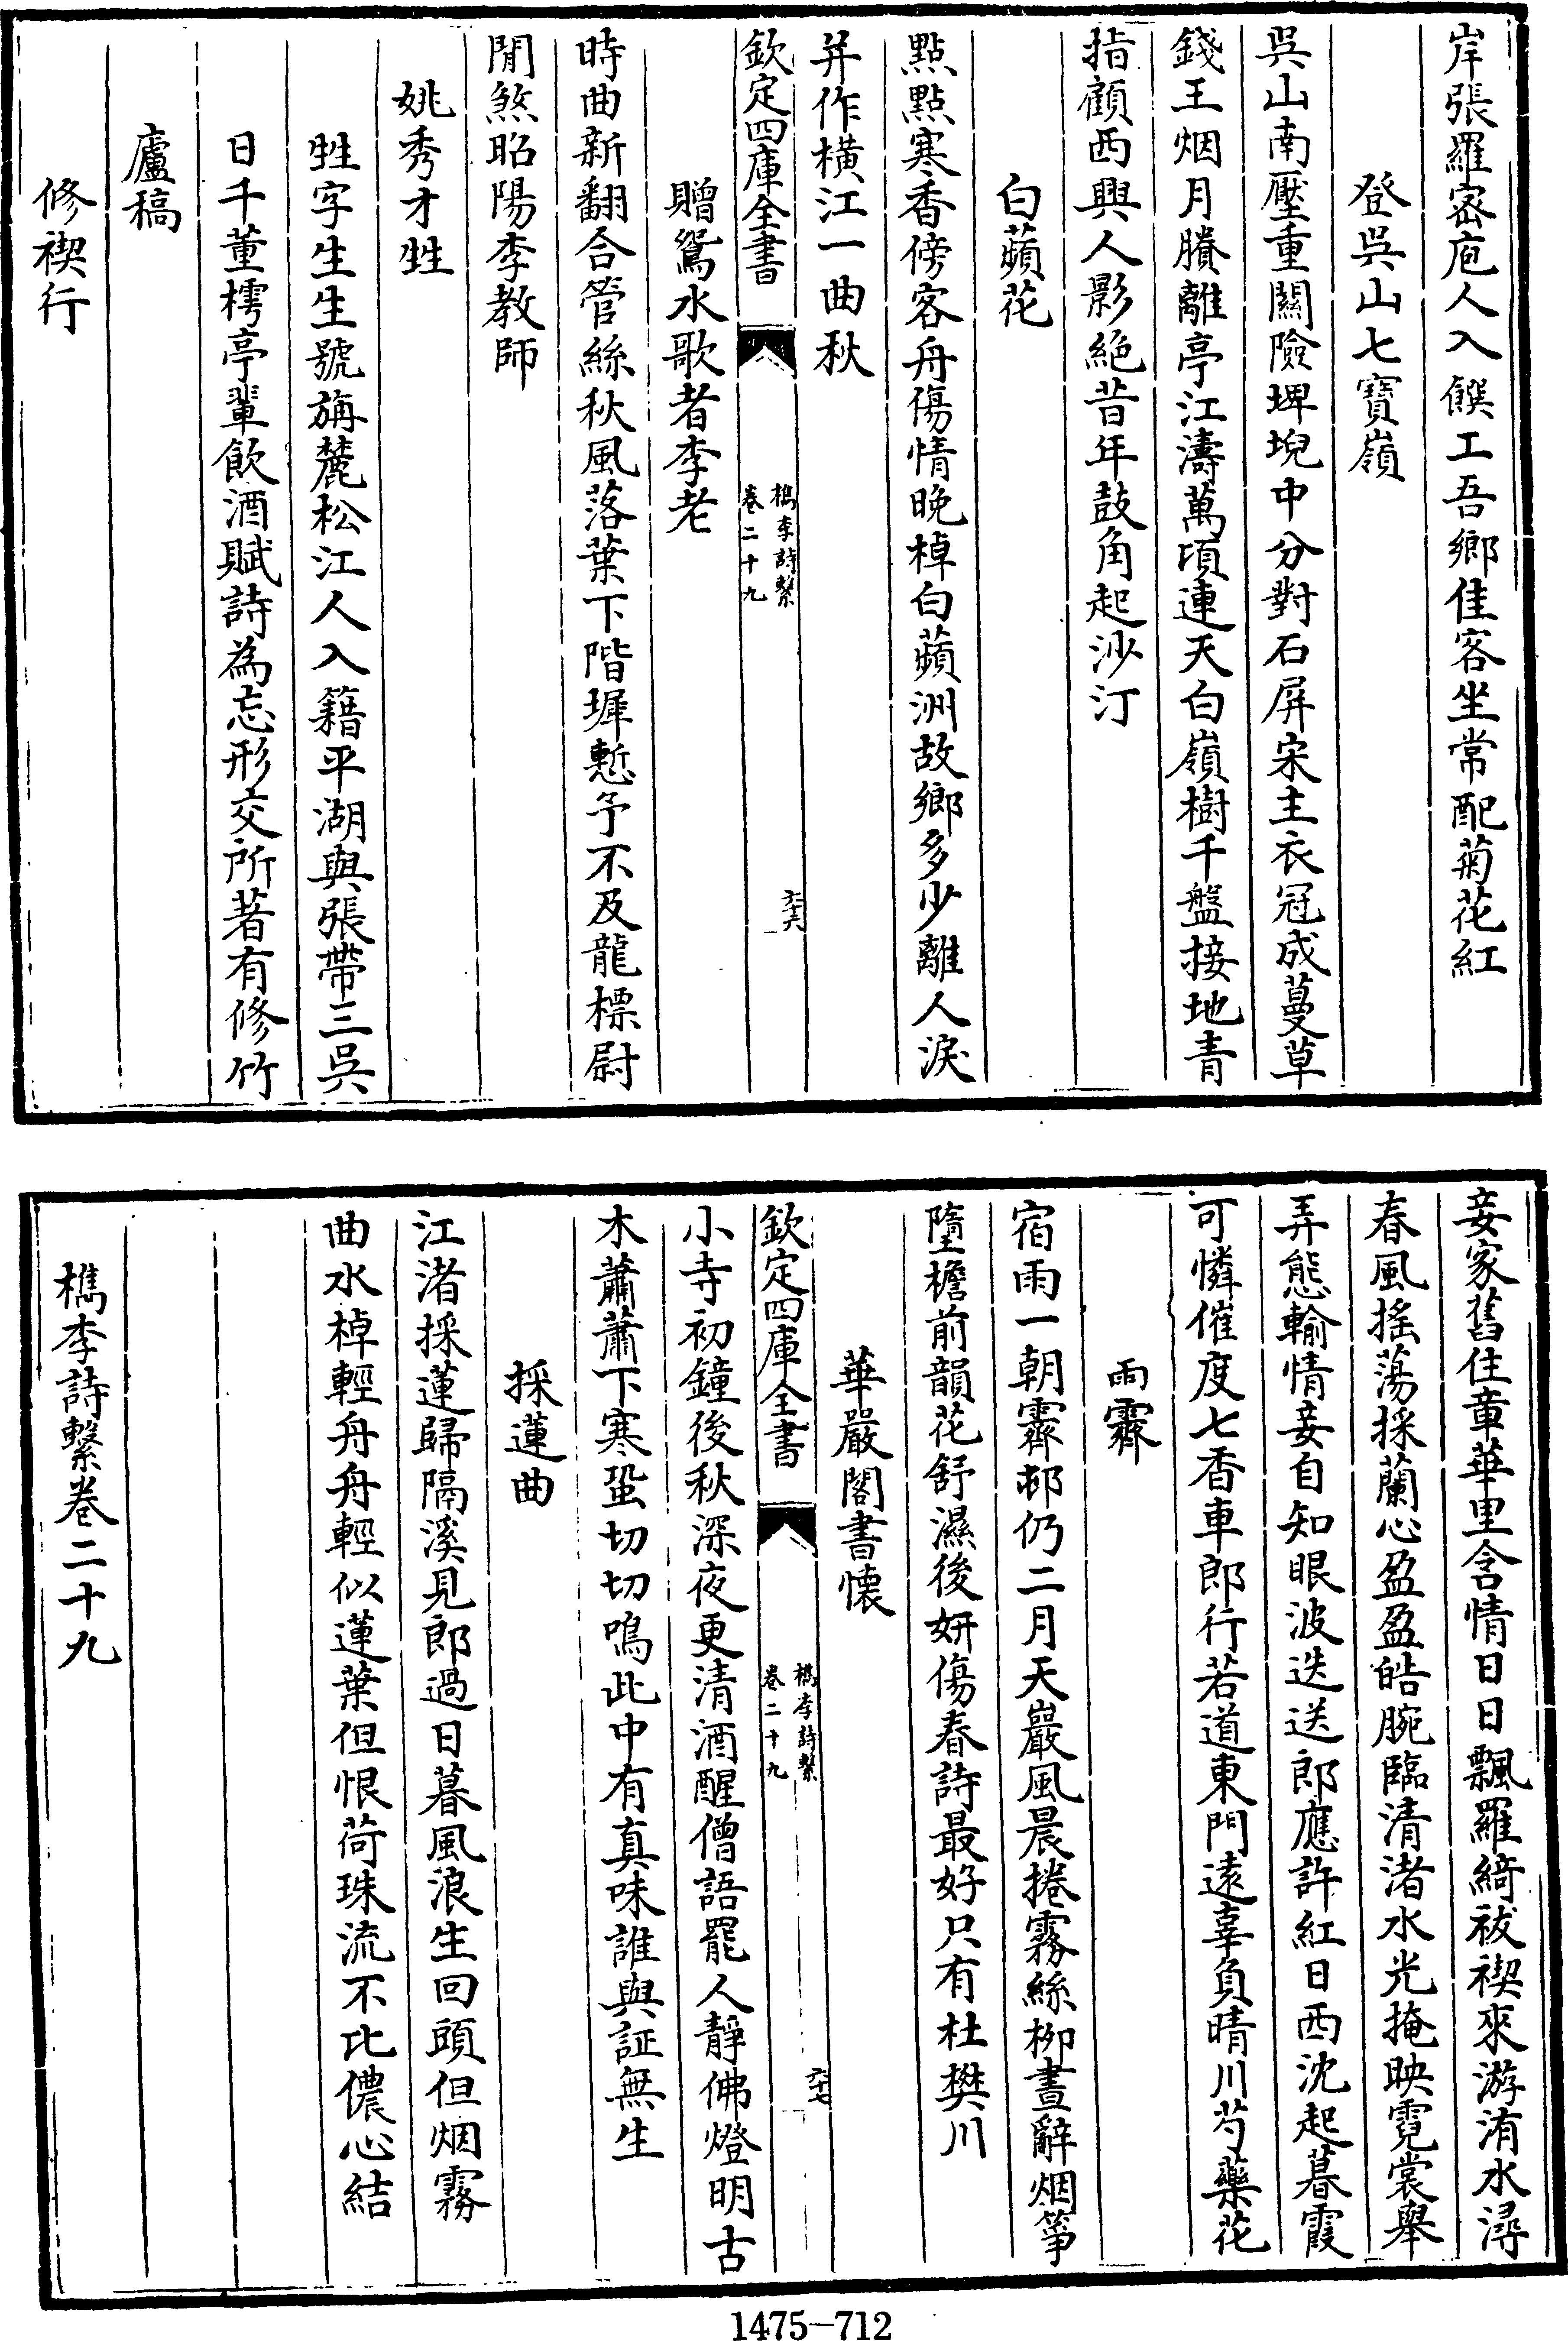 岸張羅密庖人入饌工吾鄉佳客坐常配菊花紅
登吳山七寶嶺
吳山南壓重關險埤堄中分對石屏宋主衣冠成蔓草
錢王烟月賸離亭江濤萬頃連天白嶺樹千盤接地青
指顧西興人影絕昔年鼓角起沙汀
白蘋花
點點寒香傍客舟傷情晚棹白蘋洲故鄉多少離人淚
并作橫江一曲秋
欽定四庫全書
檇李詩繫
卷二十九
六十六
贈鴛水歌者李老
時曲新翻合管絲秋風落葉下階墀慙予不及龍標尉
閒煞昭陽李教師
姚秀才甡
甡字生生號旃麓松江人入籍平湖與張帶三吳
日千董樗亭輩飲酒賦詩為忘形交所著有修竹
廬稿
修禊行
妾家舊住章華里含情日日飄羅綺祓禊來游洧水潯
春風搖蕩採蘭心盈盈皓腕臨清渚水光掩映霓裳舉
弄態輸情妾自知眼波迭送郎應許紅日西沈起暮霞
可憐催度七香車郎行若道東門遠辜負晴川芍藥花
雨霽
宿雨一朝霽邨仍二月天巖風晨捲霧絲栁晝辭烟箏
墮檐前韻花舒濕後妍傷春詩最好只有杜樊川
華嚴閣書懷
欽定四庫全書
檇李詩繫
卷二十九
六十七
小寺初鐘後秋深夜更清酒醒僧語罷人靜佛燈明古
木蕭蕭下寒蛩切切鳴此中有真味誰與証無生
採蓮曲
江渚採蓮歸隔溪見郎過日暮風浪生回頭但烟霧
曲水棹輕舟舟輕似蓮葉但恨荷珠流不比儂心結
檇李詩繫卷二十九
1475-712